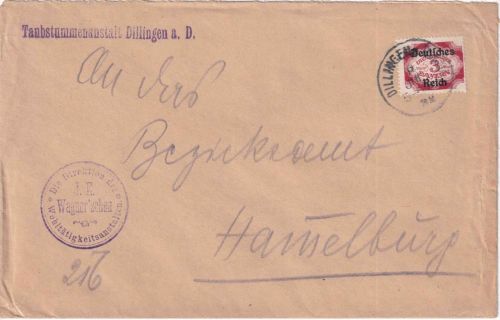 Taubstummenanstalt Dillingen a. D.
DILLINGEN
Deutsches
3
BAYERN
Reich
An das
Bezirksamt
Hammelburg
Die Direktion der
J. E.
Wagner'schen
Wohltätigkeitsanstalten
216